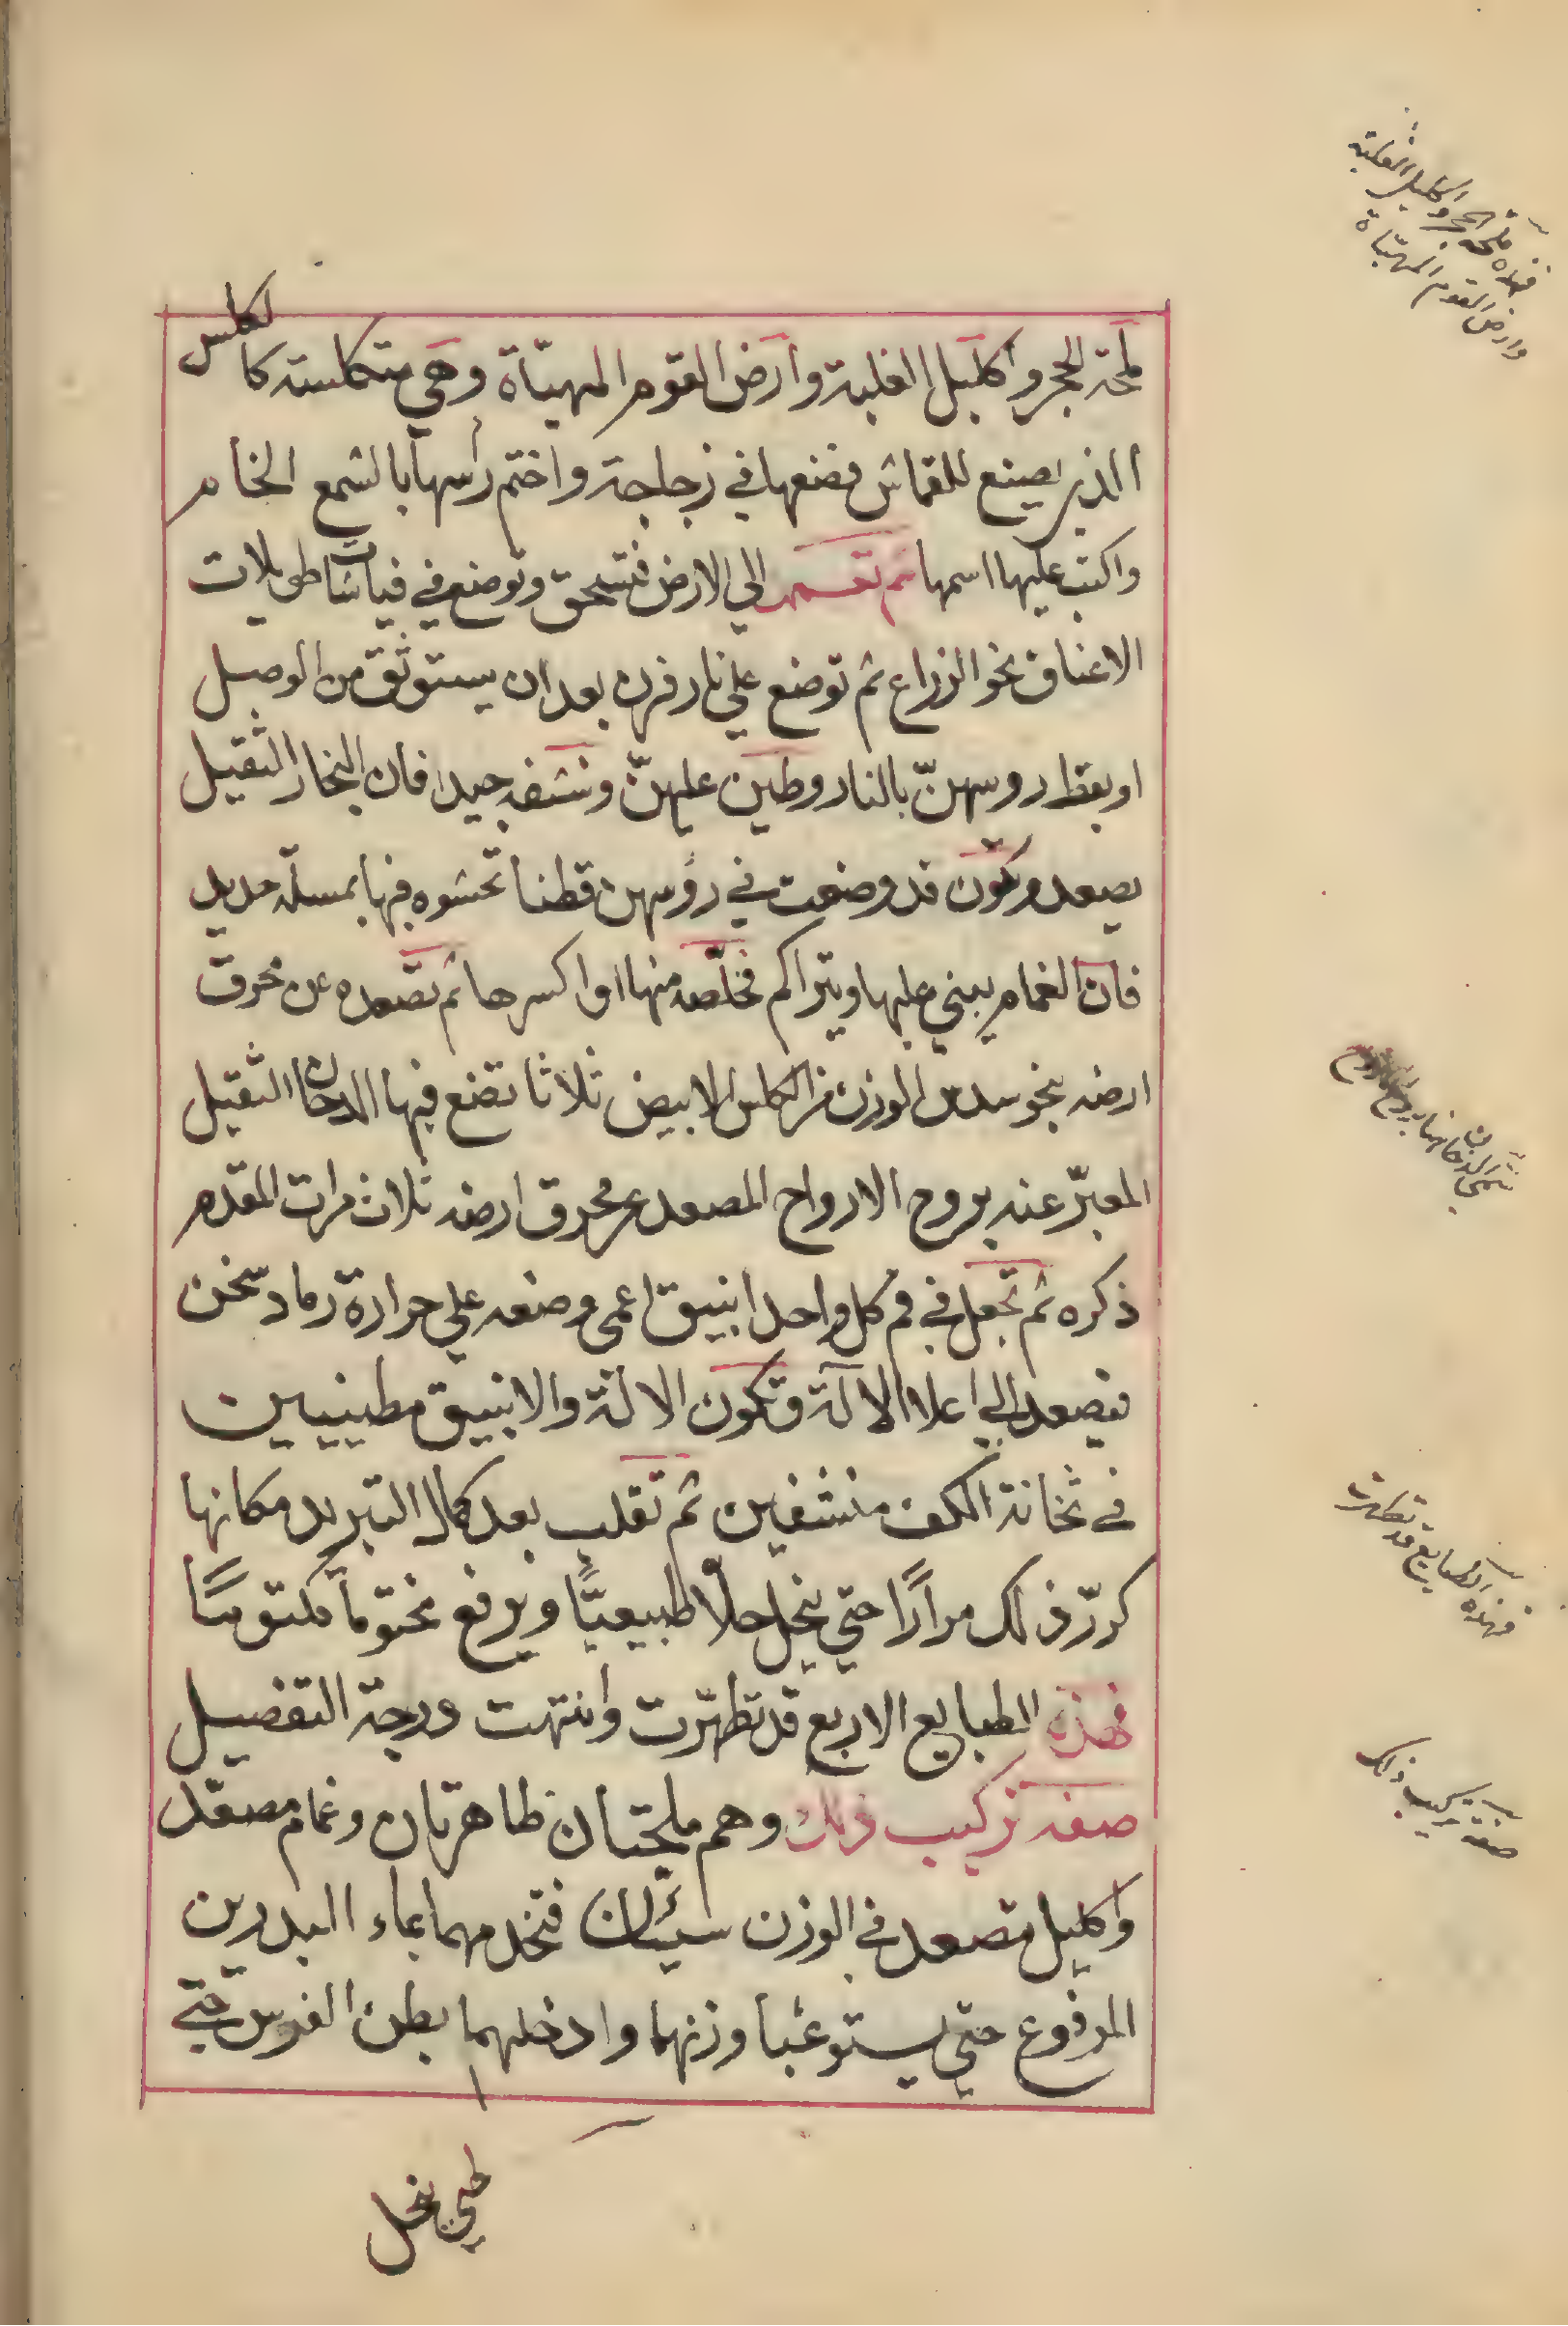 ملحة الحجر واكليل الغلبة وارض القوم المهيّاة وهي متكلسة كا لكلس
الذي يصنع للقماش فضعها في زجاجة واختم راسها بالشمع الخام
واكتب عليها اسمها ثم تعمد الي الارض فتسحق وتوضع في فياشات طويلات
الاعناق نحو الزراع ثم توضع علي نار فرن بعد ان يستوثق من الوصل
او بقطر روسهنّ بالنار وطين عليهنّ ونشفه جيدا فان البخار الثقيل
يصعد وتكون قد وضعت في رؤسهن قطنا تحشوه فيها بمسلّة حديد
فان الغمام يبني عليها ويتراكم فخلّصه منها او اكسرها ثم تصعده عن محرق
ارضه بنحو سدس الوزن من الكلس الابيض ثلاثا تضع فيها الدخان الثقيل
المعبّر عنه بروح الارواح المصعد عن محرق ارضه ثلاث مرات المقدم
ذكره ثم تجعل في فم كل واحد انبيق اعمي وضعه علي حرارة رماد سخن
فيصعد الي اعلا الالة وتكون الالة والانبيق مطينيين
في ثخانة الكف منشفين ثم تقلب بعد كمال التبريد مكانها
كررّ ذلك مرارًا حتي ينحل حلًا طبيعيًّا ويرفع مختومًا مكتومًا
فهذه الطبايع الاربع قد تطهرّت وانتهت ورجة التفصيل
صفة تركيب ذلك وهم ملحتان طاهرتان وغمام مصعّد
واكليل متصعد في الوزن سيّئان فتخدمهما بماء البدرين
المرفوع حتي يستوعبا وزنهما وادخلهما بطن الفرس حتي
حتي ينحل
فهذه ملحة الحجر واكليل الغلبة
وارض القوم المهيّاة
فهذه الطبايع قد تطهرت
صفة تركيب ذلك